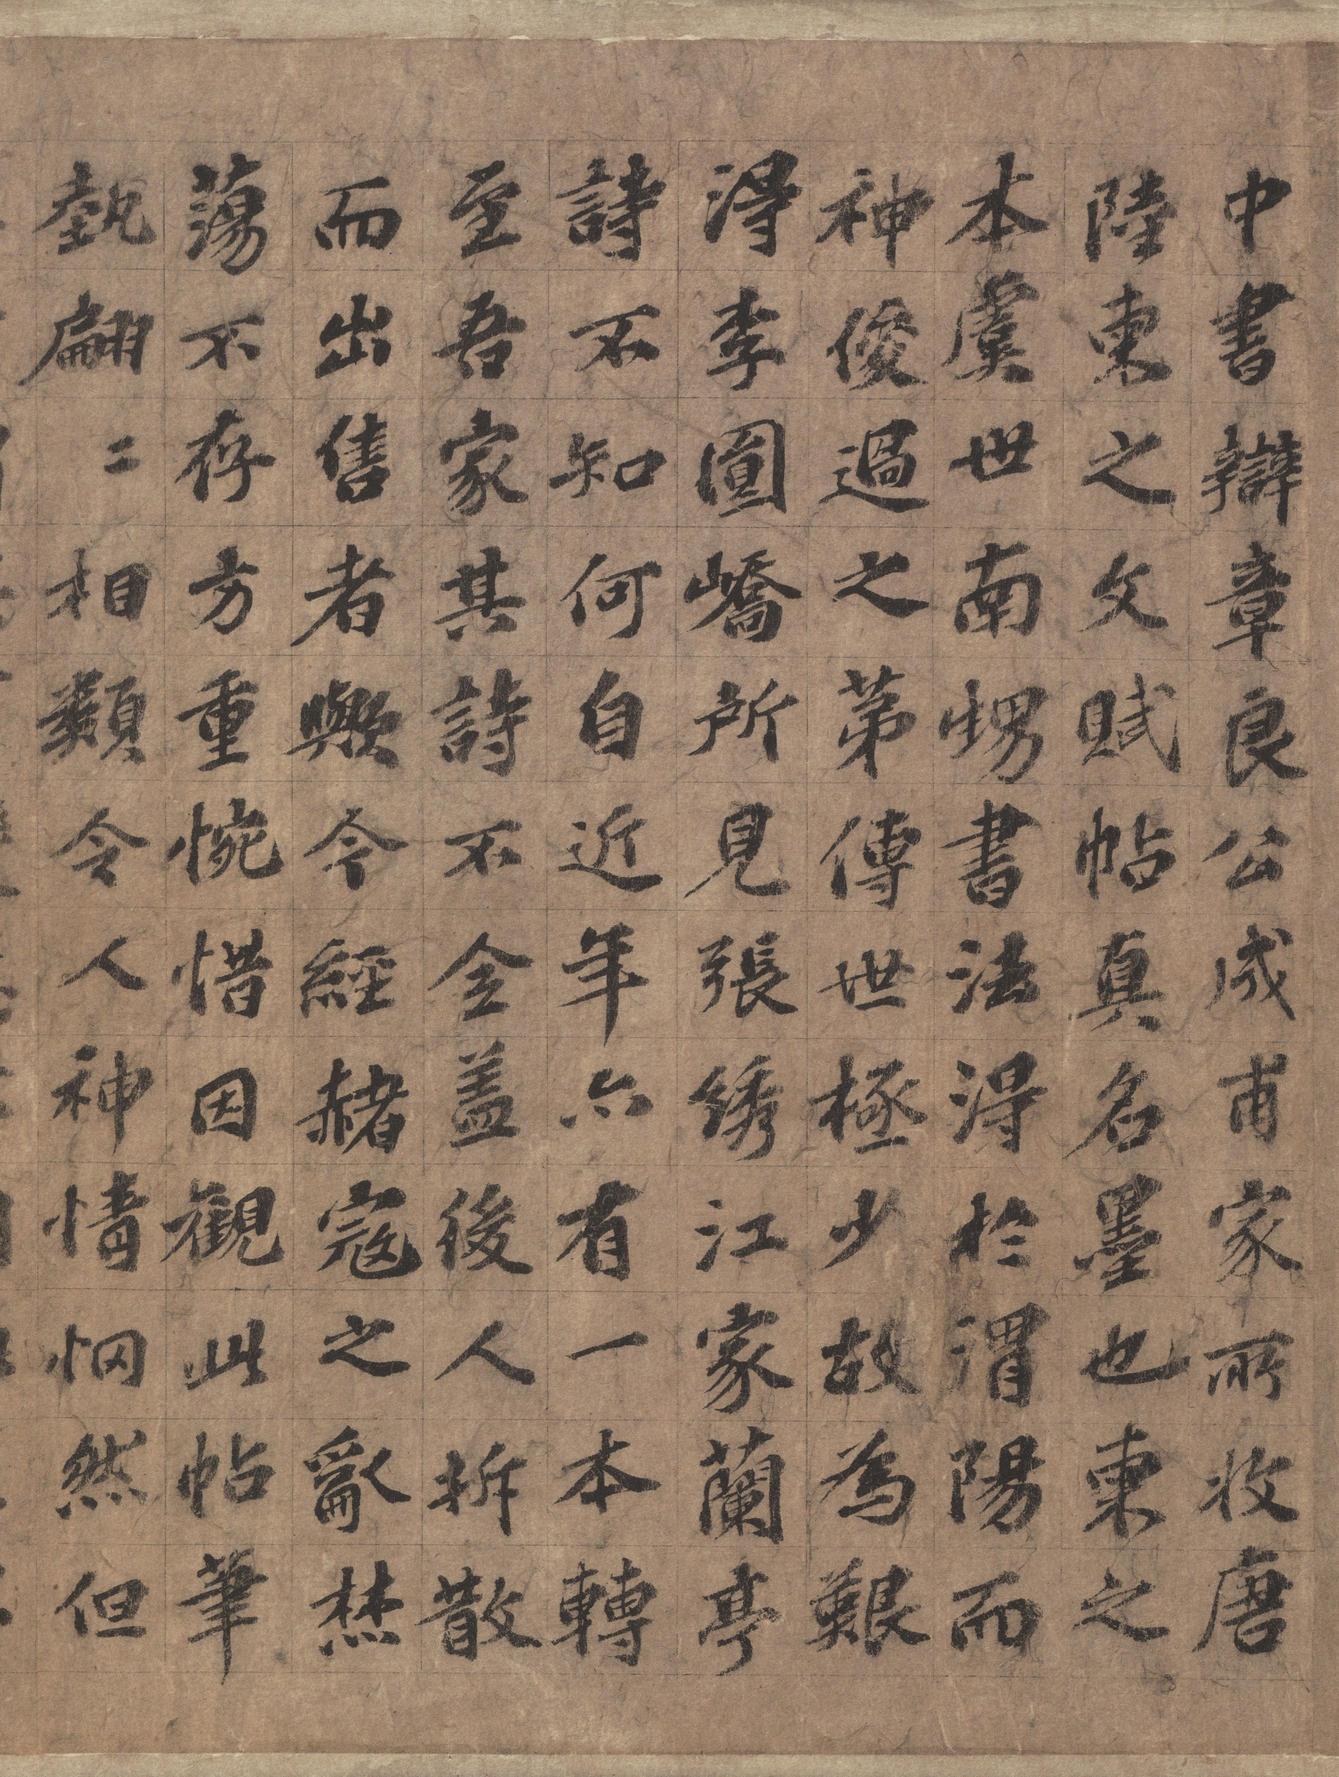 中書辯章良公成甫家所收唐
陸柬之文賦帖真名墨也柬之
本虞世南甥書法得於渭陽而
神俊過之第傳世極少故為艱
得李圖嶠所見張綉江家蘭亭
詩不知何自近年亦有一本轉
至吾家其詩不全蓋後人拆散
而出售者歟今經赭寇之亂焚
蕩不存方重惋惜因觀此帖筆
執翩二相類令人神情惘然但